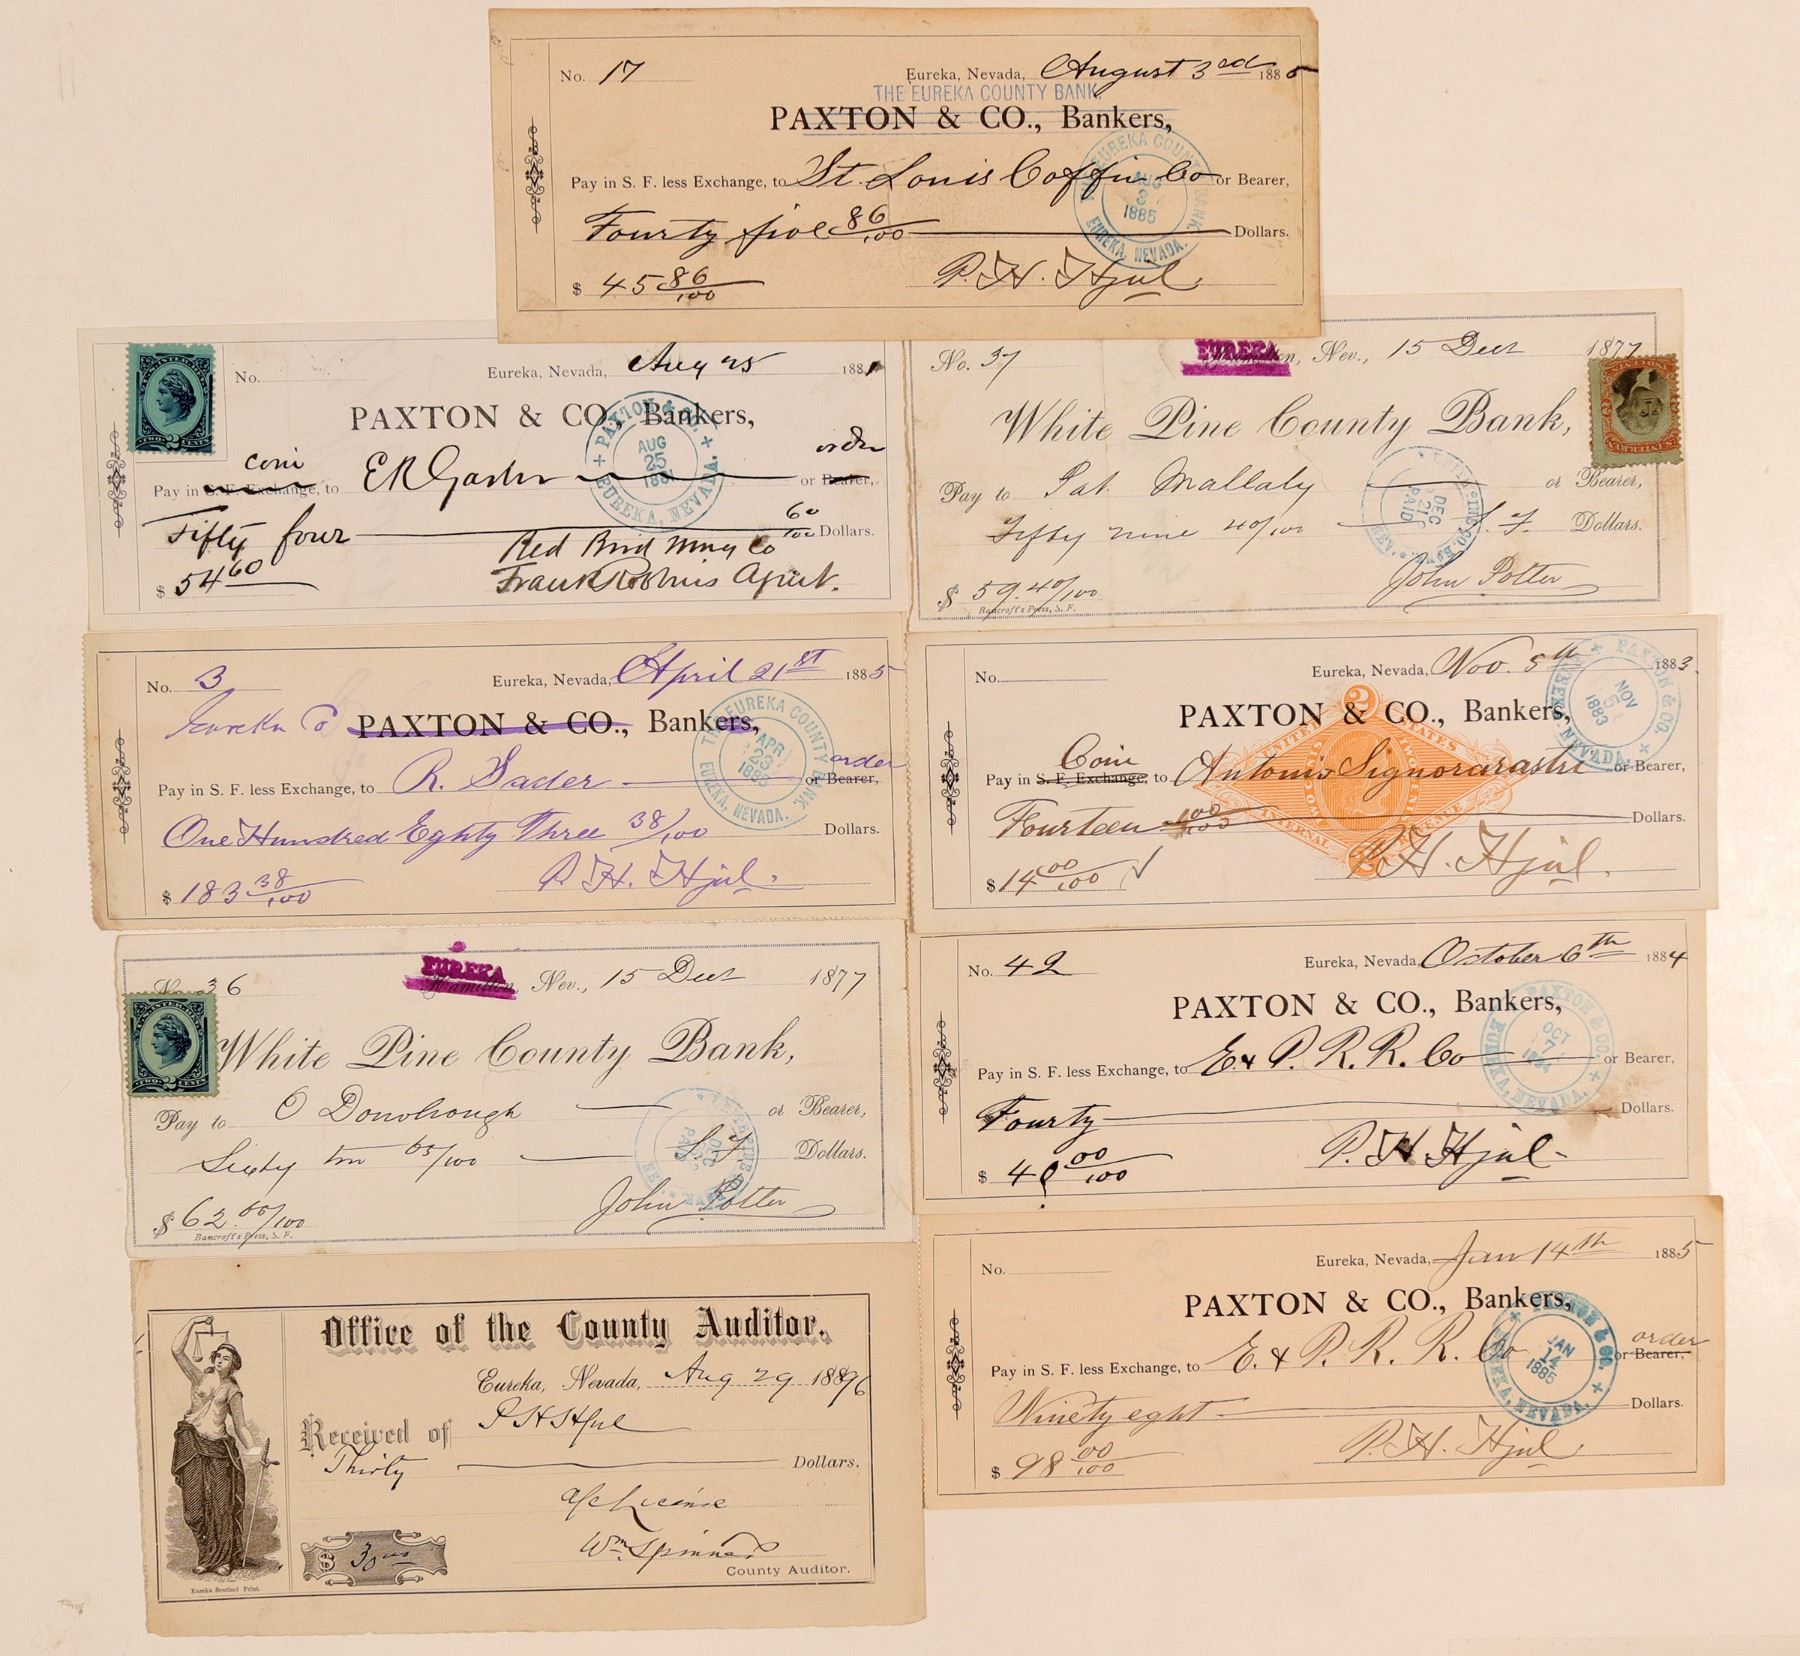 No. 17 Eureka, Nevada, August 3rd 1885
THE EUREKA COUNTY BANK,
PAXTON & CO., Bankers,
Pay in S. F. less Exchange, to St. Louis Coffin Co or Bearer,
Fourty five 86/100 Dollars.
$ 45 86/100 P. H. Hjul
THE EUREKA COUNTY BANK. AUG 3 1885 EUREKA, NEVADA.
No. Eureka, Nevada, Aug 25 1881
PAXTON & CO., Bankers,
coin order
Pay in S. F. Exchange, to or Bearer,
Fifty four 60/100 Dollars.
Red Bird Mng Co
$ 54 60 Frank Robbins Agent.
PAXTON & CO. AUG 25 1881 EUREKA, NEVADA.
TWO 2 CENTS
No. 37 EUREKA Hamilton, Nev., 15 Decr 1877
White Pine County Bank,
Pay to Pat. Mallaly or Bearer,
Fifty nine 40/100 S. F. Dollars.
$ 59.40/100 John Potter
Bancroft's Press, S. F.
DEC 21 PAID
No. 3 Eureka, Nevada, April 21st 1885
Eureka Co PAXTON & CO., Bankers,
order
Pay in S. F. less Exchange, to R. Sader or Bearer,
One Hundred Eighty Three 38/100 Dollars.
$ 183 38/100 P. H. Hjul.
THE EUREKA COUNTY BANK. APR 23 1885 EUREKA, NEVADA.
No. Eureka, Nevada, Nov. 5th 1883
PAXTON & CO., Bankers,
Coin
Pay in S. F. Exchange, to Antonio or Bearer,
Fourteen 00/100 Dollars.
$ 14 00/100 P. H. Hjul.
PAXTON & CO. NOV 5 1883 EUREKA, NEVADA.
UNITED STATES INTERNAL REVENUE
2
No. 36 EUREKA Hamilton, Nev., 15 Decr 1877
White Pine County Bank,
Pay to O Donohough or Bearer,
Sixty two 65/100 S. F. Dollars.
$ 62. /100 John Potter
Bancroft's Press, S. F.
TWO 2 CENTS
No. 42 Eureka, Nevada, October 6th 1884
PAXTON & CO., Bankers,
Pay in S. F. less Exchange, to E & P. R. R. Co or Bearer,
Fourty Dollars.
$ 40 00/100 P. H. Hjul
PAXTON & CO. OCT 7 1884 EUREKA, NEVADA.
Office of the County Auditor.
Eureka, Nevada, Aug 29 1896
Received of P H Hjul
Thirty Dollars.
a/c License
$ 30 00 Wm Spinner
County Auditor.
Eureka Sentinel Print.
No. Eureka, Nevada, Jan 14th 1885
PAXTON & CO., Bankers,
order
Pay in S. F. less Exchange, to E. & P. R. R. Co or Bearer,
Ninety eight Dollars.
$ 98 00/100 P. H. Hjul
PAXTON & CO. JAN 14 1885 EUREKA, NEVADA.